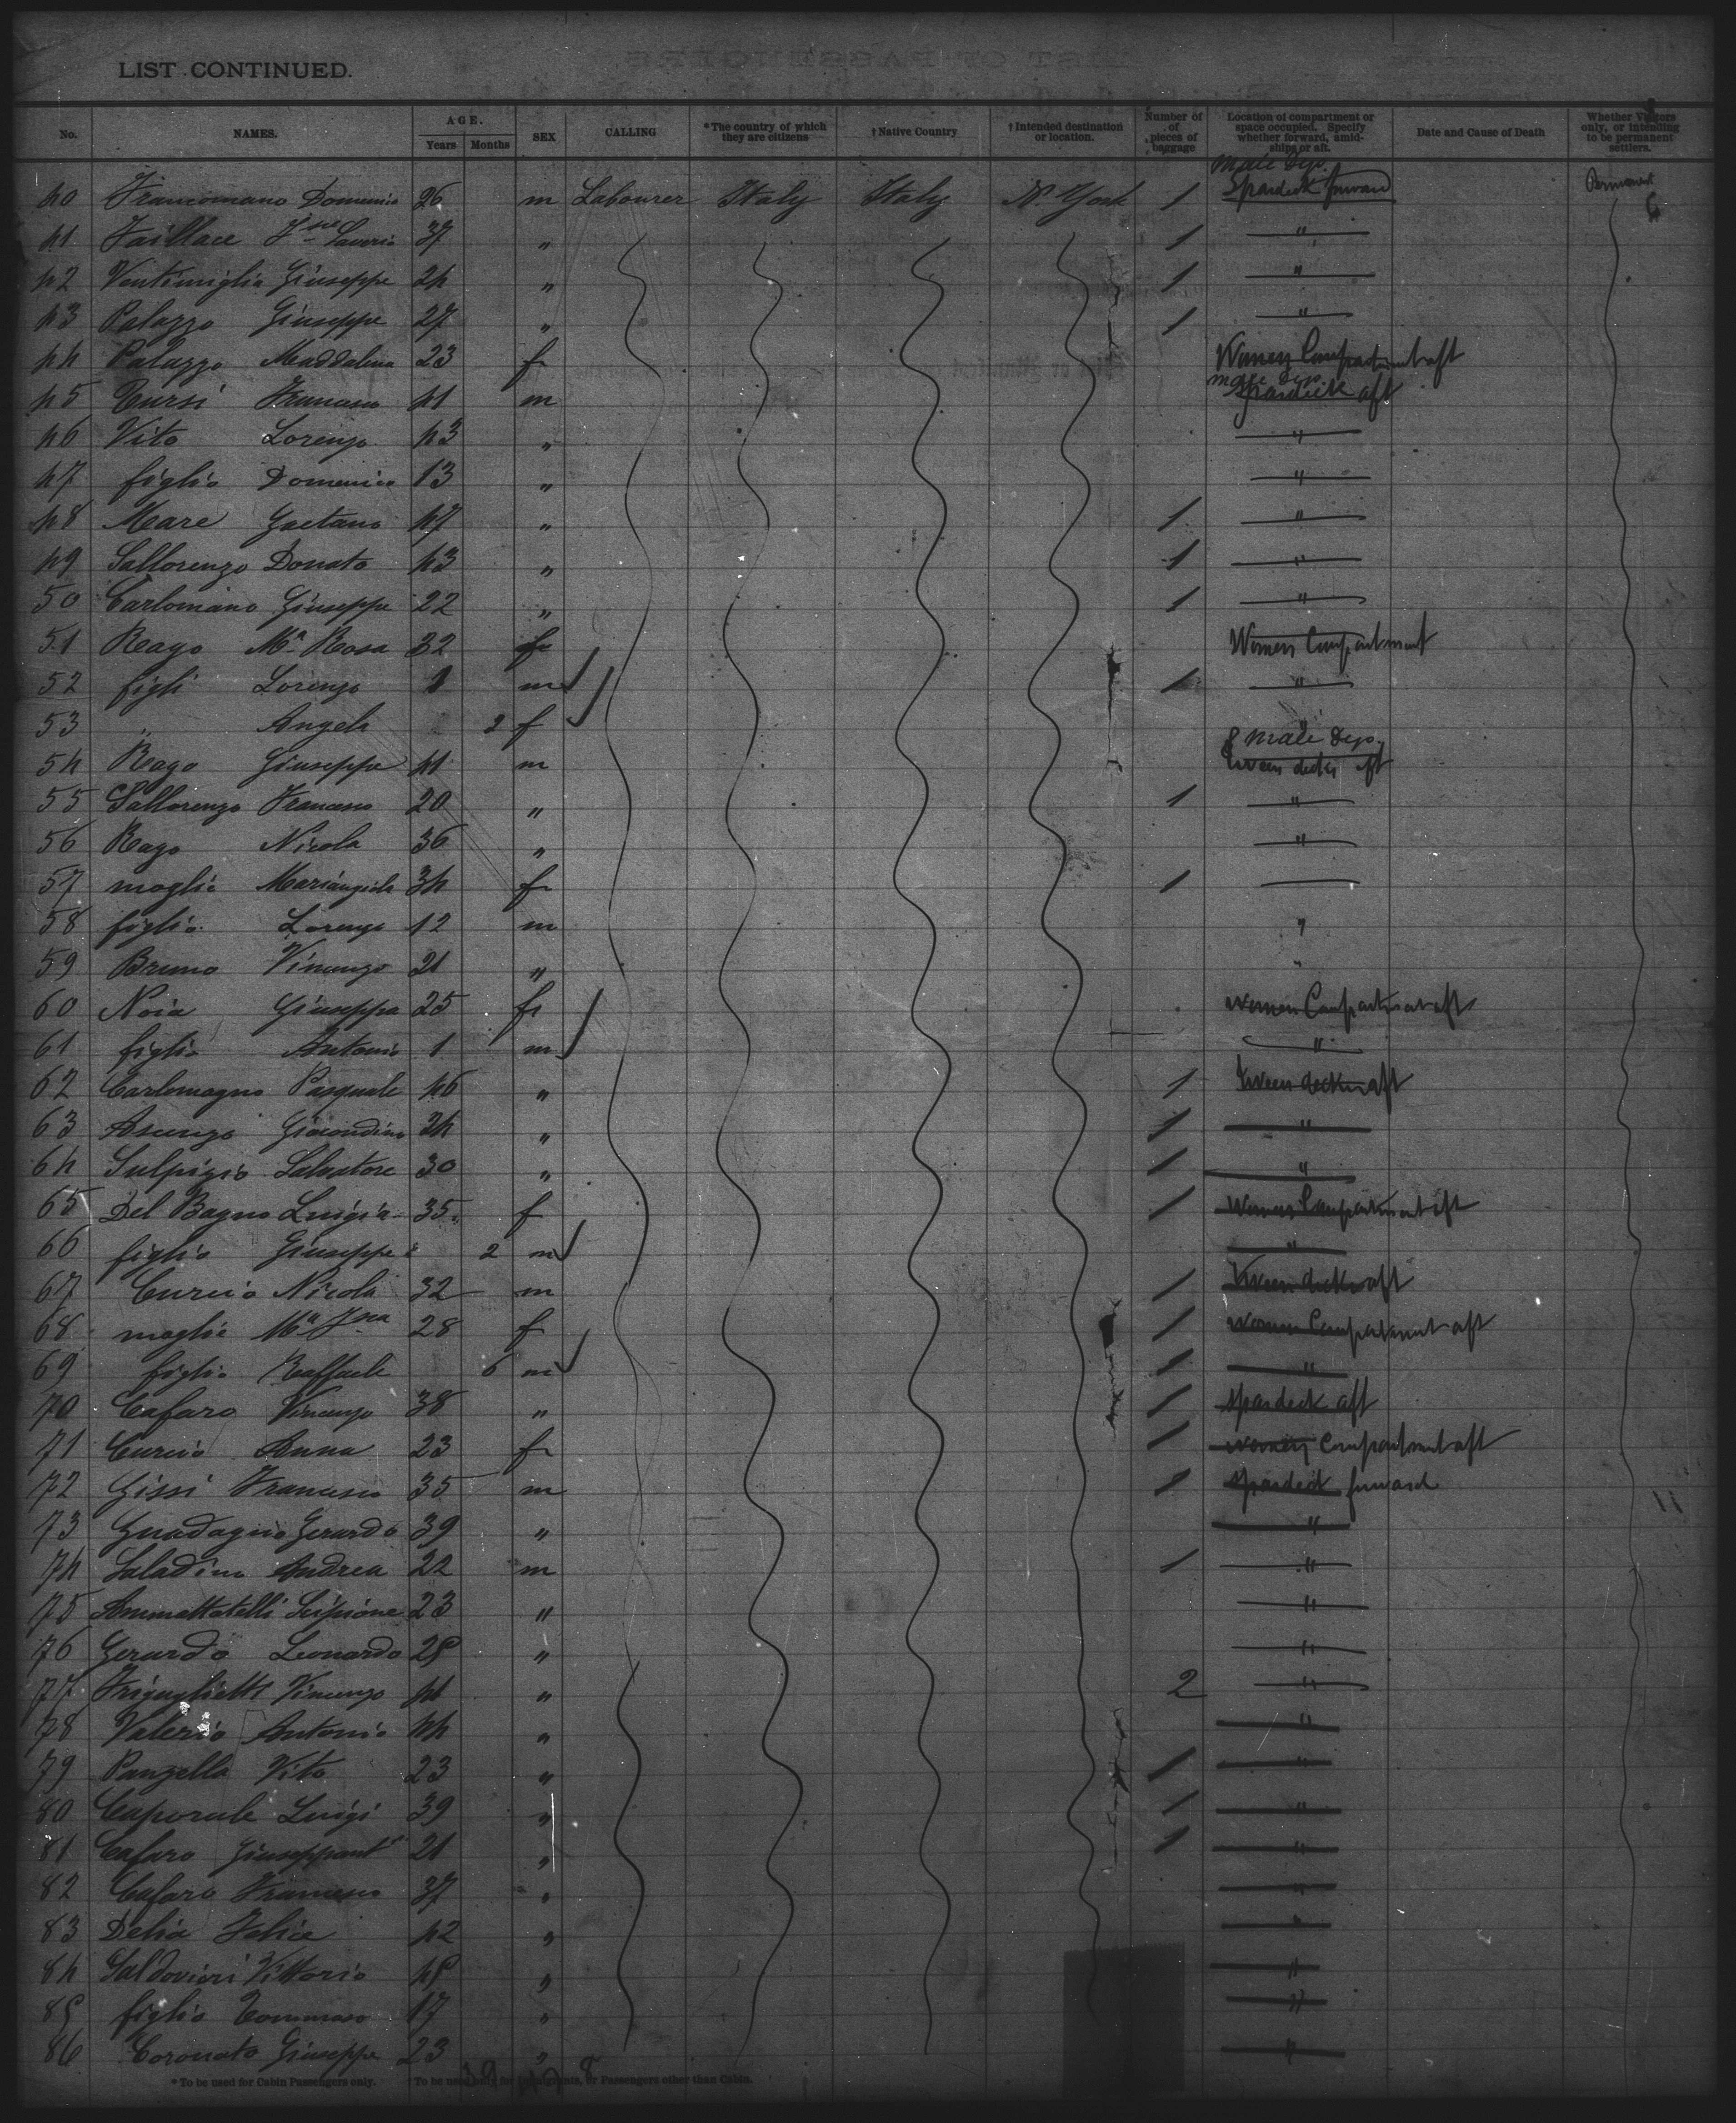 LIST CONTINUED.
No. NAMES. AGE. Years Months SEX CALLING *The country of which they are citizens †Native Country †Intended destination or location. Number of pieces of baggage Location of compartment or space occupied. Specify whether forward, amidships or aft. Date and Cause of Death Whether Visitors only, or intending to be permanent settlers.
Male Dep.
40 Francomano Domenico 26 m Labourer Italy Italy N York 1 Spardeck forward Permanent
41 Faillace Saverio 37 " 1 "
42 Ventimiglia Giuseppe 24 " 1 "
43 Palazzo Giuseppe 27 " 1 "
44 Palazzo Maddalena 23 f Women Compartment aft
Male Dep.
45 Cursi Francesco 41 m Spardeck aft
46 Vito Lorenzo 43 " "
47 figlio Domenico 13 " "
48 Mare Gaetano 47 " 1 "
49 Sallorenzo Donato 43 " 1 "
50 Carlomano Giuseppe 22 " 1 "
51 Rago Mª Rosa 32 f Women Compartment
52 figli Lorenzo 1 m 1 "
53 " Angela 2 f "
Male Dep.
54 Rago Giuseppe 41 m tween decks aft
55 Sallorenzo Francesco 20 " 1 "
56 Rago Nicola 36 " "
57 moglie Mariangiola 34 f 1
58 figlio Lorenzo 12 m "
59 Bruno Vincenzo 21 " "
60 Noia Giuseppa 25 f Women Compartment aft
61 figlio Antonio 1 m "
62 Carlomagno Pasquale 46 " 1 tween decks aft
63 Giocondino 24 " 1 "
64 Sulpizio Salvatore 30 " 1 "
65 Del Bagno Luigia 35 f 1 Women Compartment aft
66 figlio Giuseppe 2 m "
67 Curcio Nicola 32 m 1 tween decks aft
68 moglie Mª 28 f 1 Women Compartment aft
69 figlio Raffaele 6 m 1 "
70 Cafaro Vincenzo 38 " 1 Spardeck aft
71 Curcio Anna 23 f 1 Women Compartment aft
72 Gissi Francesco 35 m 1 Spardeck forward
73 Guadagno Gerardo 39 " "
74 Saladino Andrea 22 m 1 "
75 Ammattatelli Scipione 23 " "
76 Gerardo Leonardo 28 " "
77 Vincenzo 41 " 2 "
78 Valerio Antonio 44 " "
79 Panzella Vito 23 " 1 "
80 Caporale Luigi 39 " 1 "
81 Cafaro Giuseppant° 21 " 1 "
82 Cafaro Francesco 37 " "
83 Delia Felice 42 " "
84 Saldovieri Vittorio 48 " "
85 figlio Tommaso 17 " "
86 Coronato Giuseppe 23 " "
*To be used for Cabin Passengers only. †To be used only for Immigrants, or Passengers other than Cabin.